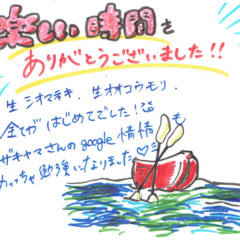 楽しい時間を
ありがとうございました!!
生シオマネキ、生オオコウモリ、
全てがはじめてでした!
ザキヤマさんのgoogle情情も
めっちゃ勉強になりました♡